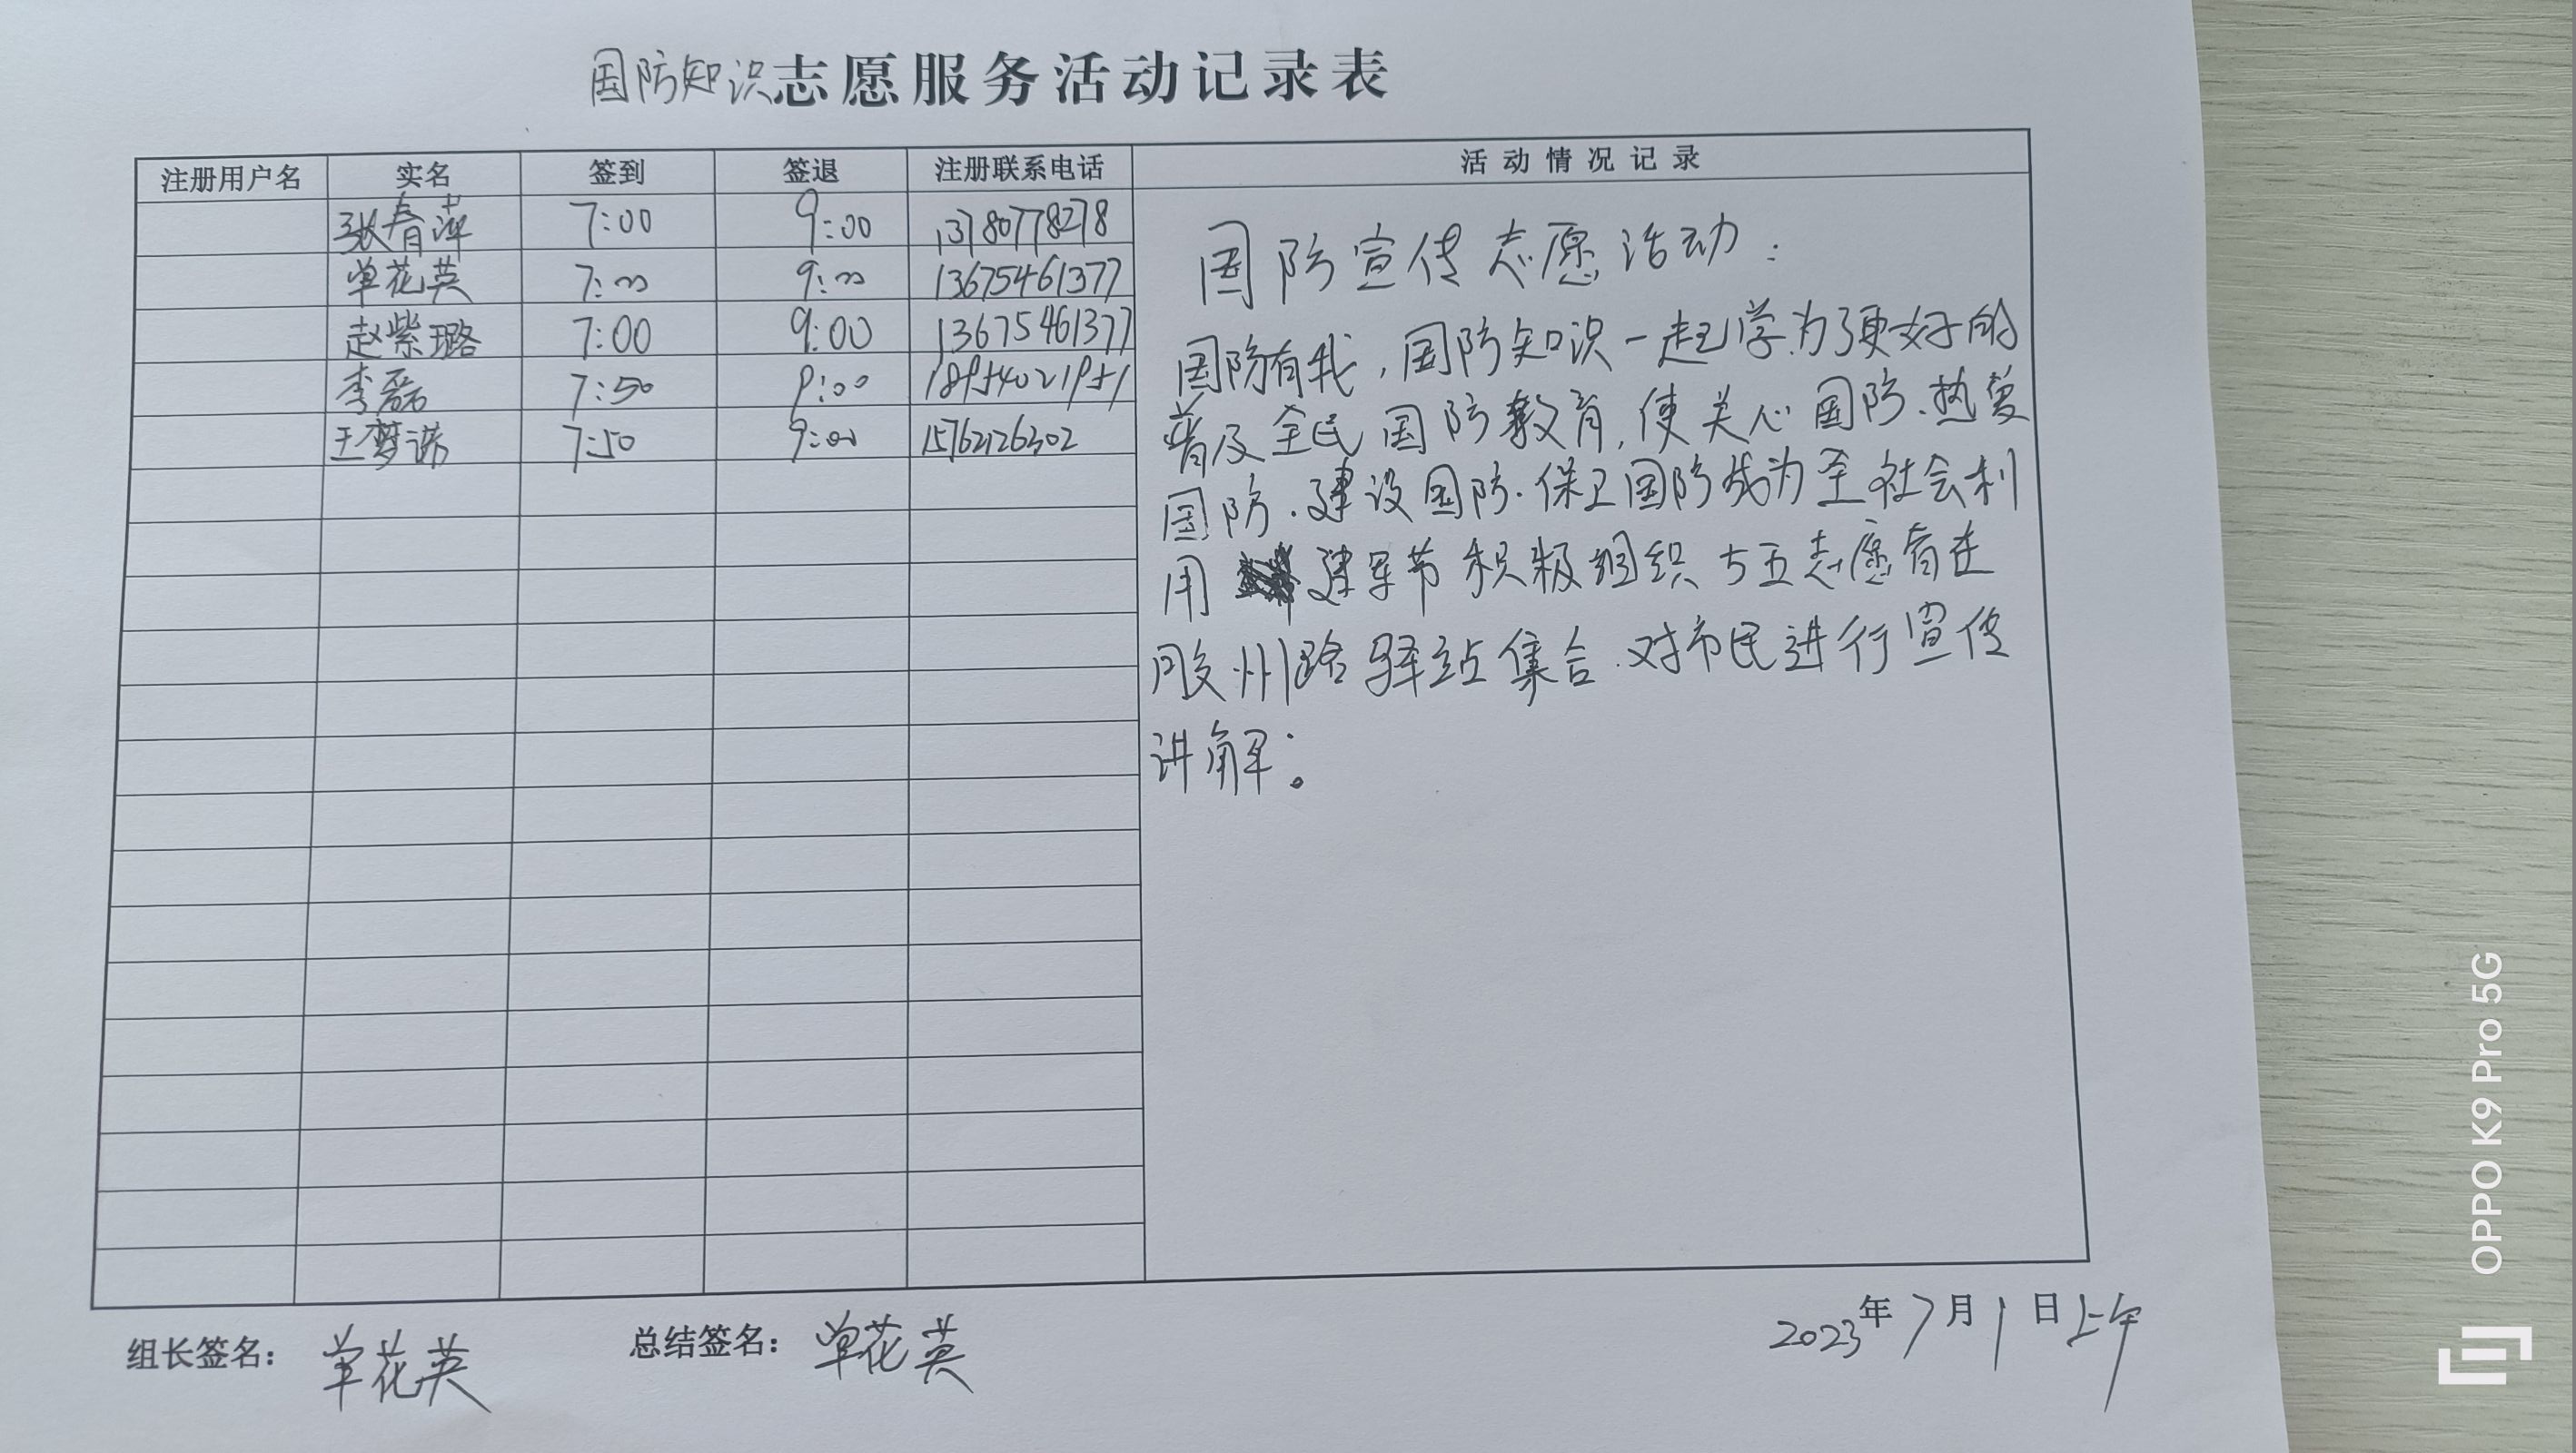 国防知识志愿服务活动记录表
注册用户名 实名 签到 签退 注册联系电话 活动情况记录
张春萍 7:00 9:00 13780778278
单花英 7:00 9:00 13675461377
赵紫璐 7:00 9:00 13675461377
李磊 7:50 9:00 18954021951
王梦诺 7:50 9:00 15762126302
国防宣传志愿活动:
国防有我,国防知识一起学.为了更好的
普及全民国防教育,使关心国防.热爱
国防.建设国防.保卫国防成为全社会利
用 建军节积极组织 五志愿者在
胶州路驿站集合.对市民进行宣传
讲解。
组长签名: 单花英 总结签名: 单花英 2023年7月1日上午
OPPO K9 Pro 5G